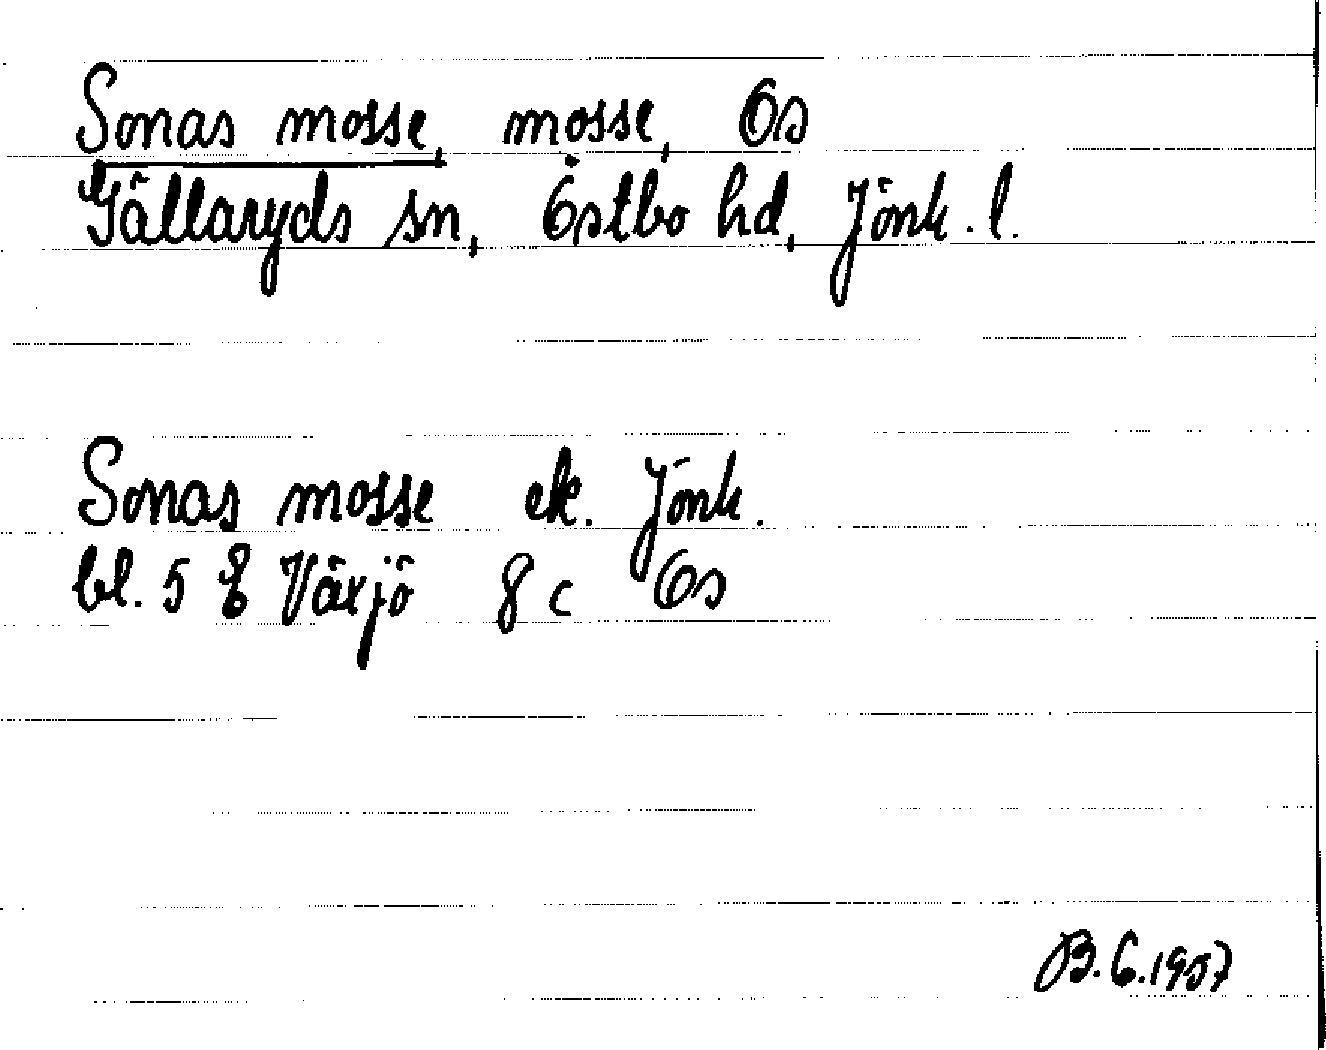 Sonas mosse, mosse, Os
Gällaryds sn, Östbo hd, Jönk. l.
Sonas mosse ek. Jönk.
bl. 5 E Växjö 8 c Os
B.G.1957